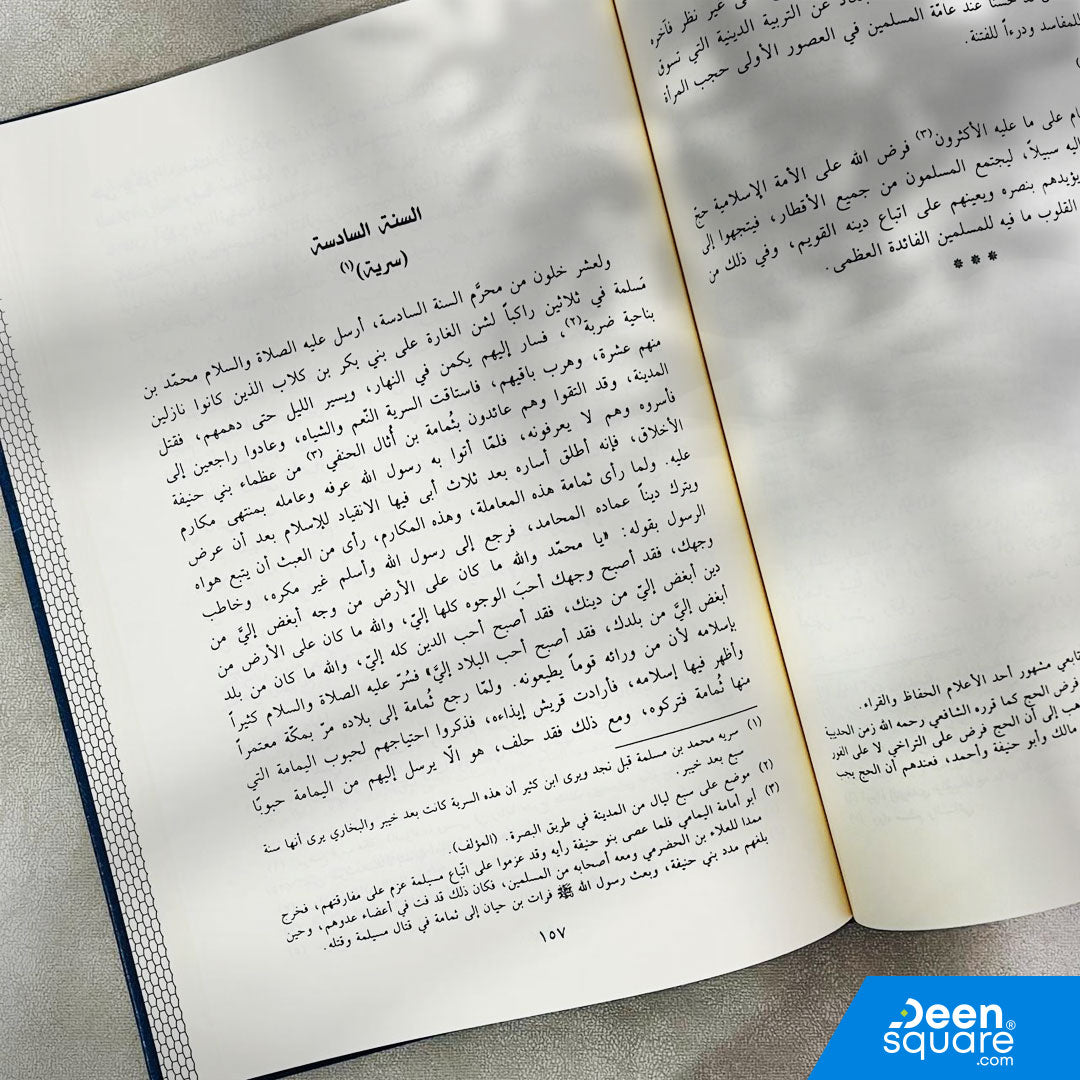 غير نظر فآخره
عن التربية الدينية التي تسوق
عند عامّة المسلمين في العصور الأولى حجب المرأة
للمفاسد ودرءاً للفتنة.
على ما عليه الأكثرون(٣) فرض الله على الأمة الإسلامية حجّ
إليه سبيلاً، ليجتمع المسلمون من جميع الأقطار، فيتجهوا إلى
يؤيدهم بنصره ويعينهم على اتباع دينه القويم، وفي ذلك من
القلوب ما فيه للمسلمين الفائدة العظمى.
* * *
تابعي مشهور أحد الأعلام الحفاظ والقراء.
فرض الحج كما قرره الشافعي رحمه الله زمن الحديبية
إلى أن الحج فرض على التراخي لا على الفور
مالك وأبو حنيفة وأحمد، فعندهم أن الحج يجب
السنة السادسة
(سرية)(١)
ولعشر خلون من محرَّم السنة السادسة، أرسل عليه الصلاة والسلام محمّد بن
مَسلمة في ثلاثين راكباً لشن الغارة على بني بكر بن كلاب الذين كانوا نازلين
بناحية ضربة(٢)، فسار إليهم يكمن في النهار، ويسير الليل حتى دهمهم، فقتل
منهم عشرة، وهرب باقيهم، فاستاقت السرية النّعم والشياه، وعادوا راجعين إلى
المدينة، وقد التقوا وهم عائدون بثُمامة بن أُثال الحنفي(٣) من عظماء بني حنيفة
فأسروه وهم لا يعرفونه، فلمّا أتوا به رسول الله عرفه وعامله بمنتهى مكارم
الأخلاق، فإنه أطلق أساره بعد ثلاث أبى فيها الانقياد للإسلام بعد أن عرض
عليه. ولما رأى ثمامة هذه المعاملة، وهذه المكارم، رأى من العبث أن يتبع هواه
ويترك ديناً عماده المحامد، فرجع إلى رسول الله وأسلم غير مكره، وخاطب
الرسول بقوله: «يا محمّد والله ما كان على الأرض من وجه أبغض إليَّ من
وجهك، فقد أصبح وجهك أحبَ الوجوه كلها إليّ، والله ما كان على الأرض من
دين أبغض إليَّ من دينك، فقد أصبح أحب الدين كله إليّ، والله ما كان من بلد
أبغض إليَّ من بلدك، فقد أصبح أحب البلاد إليَّ» فسُرّ عليه الصلاة والسلام كثيراً
بإسلامه لأن من ورائه قوماً يطيعونه. ولمّا رجع ثُمامة إلى بلاده مرّ بمكّة معتمراً
وأظهر فيها إسلامه، فأرادت قريش إيذاءه، فذكروا احتياجهم لحبوب اليمامة التي
منها ثُمامة فتركوه، ومع ذلك فقد حلف، هو ألّا يرسل إليهم من اليمامة حبوبًا
(١) سريه محمد بن مسلمة قبل نجد ويرى ابن كثير أن هذه السرية كانت بعد خيبر والبخاري يرى أنها سنة
سبع بعد خيبر.
(٢) موضع على سبع ليال من المدينة في طريق البصرة. (المؤلف).
(٣) أبو أمامة اليمامي فلما عصى بنو حنيفة رأيه وقد عزموا على اتّباع مسيلمة عزم على مفارقتهم، فخرج
ممدا للعلاء بن الحضرمي ومعه أصحابه من المسلمين، فكان ذلك قد فت في أعضاء عدوهم، وحين
بلغهم مدد بني حنيفة، وبعث رسول الله ﷺ فرات بن حيان إلى ثمامة في قتال مسيلمة وقتله.
١٥٧
Deen
square®
.com